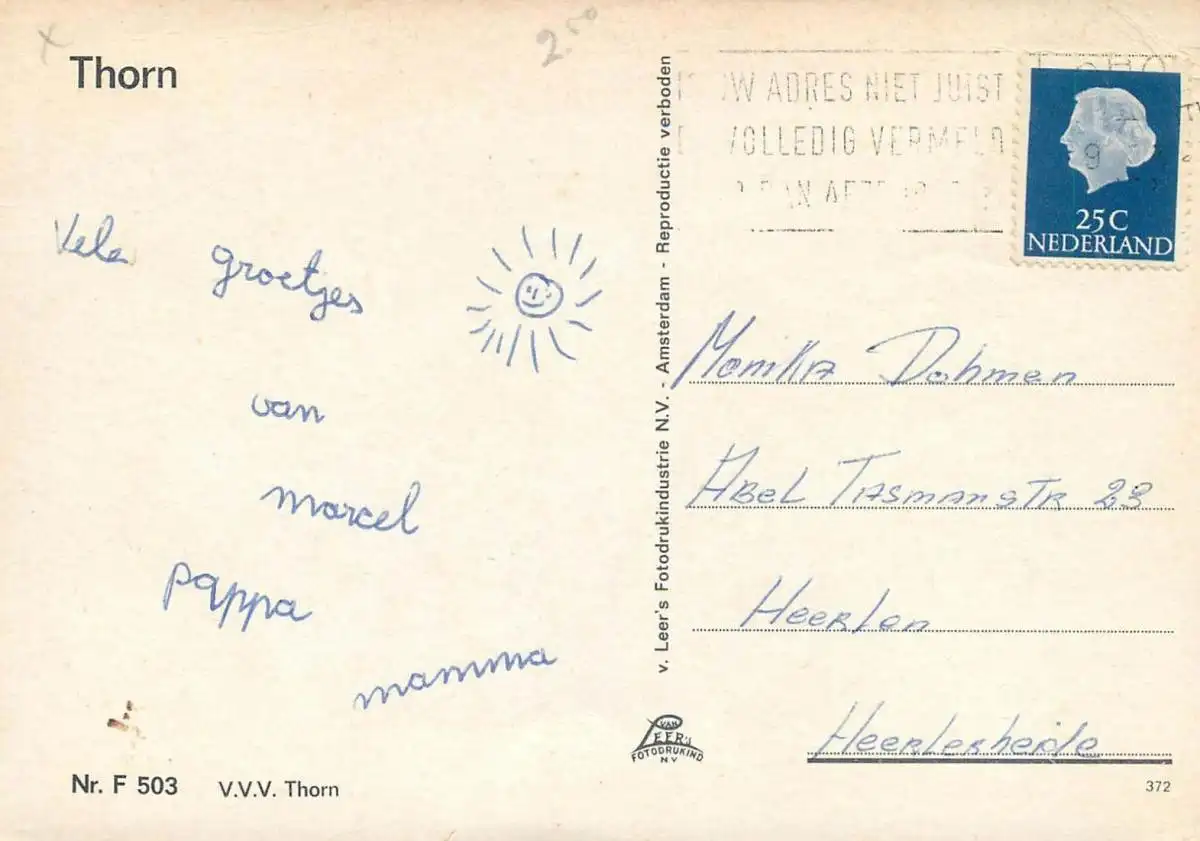 x
2.50
Thorn
Vele groetjes
van
marcel
pappa
mamma
Nr. F 503 V.V.V. Thorn
v. Leer's Fotodrukindustrie N.V. - Amsterdam - Reproductie verboden
VAN
LEER'S
FOTODRUKIND
NV
UW ADRES NIET JUIST
VOLLEDIG VERMELD
DAN
25C
NEDERLAND
Monika Dohmen
Abel Tasmanstr 23
Heerlen
Heerlerheide
372